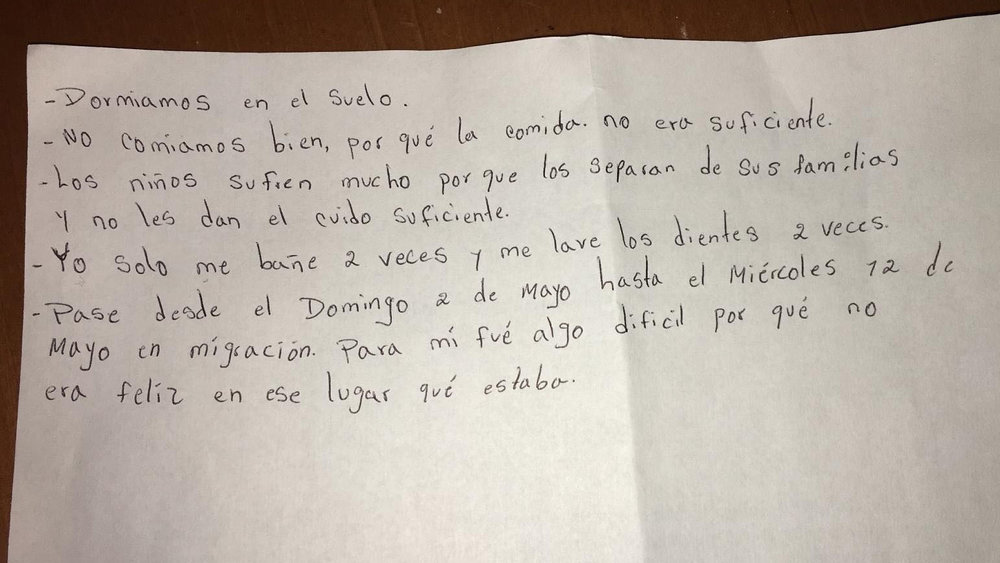 - Dormiamos en el suelo.
- NO comiamos bien, por qué la comida. no era suficiente.
- Los niños sufren mucho por que los separan de sus familias
y no les dan el cuido suficiente.
- Yo solo me bañe 2 veces y me lave los dientes 2 veces.
- Pase desde el Domingo 2 de Mayo hasta el Miércoles 12 de
Mayo en migración. Para mí fué algo dificil por qué no
era feliz en ese lugar qué estaba.